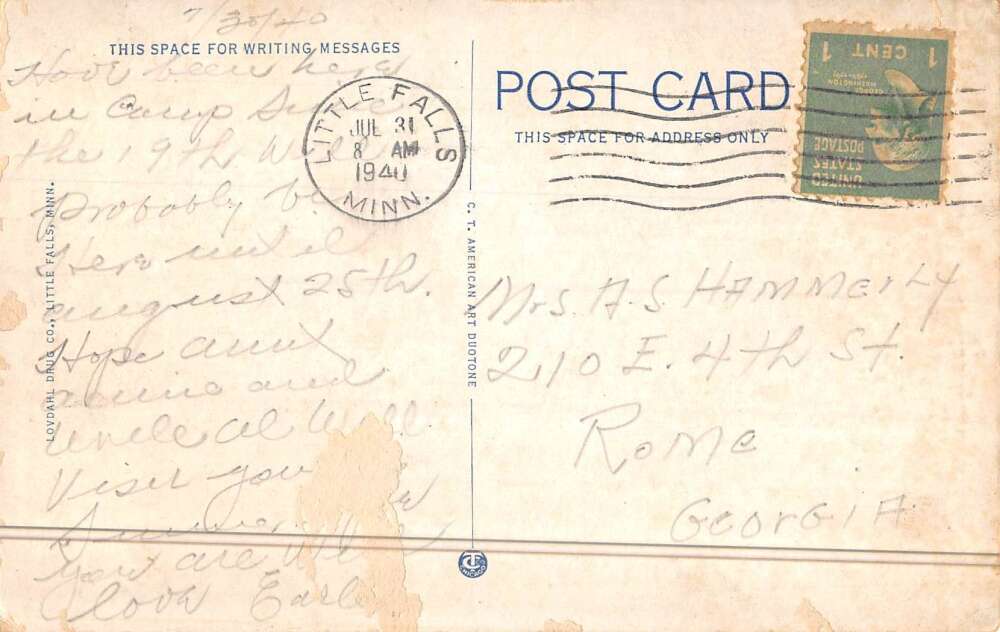 7/30/40
THIS SPACE FOR WRITING MESSAGES
Have been here
in Camp
the 19th Will
Probably be
Here until
august 25th.
Hope aunt
and
uncle al Will
Visit you
you are
Love Earl
LOVDAHL DRUG CO., LITTLE FALLS, MINN.
LITTLE FALLS
JUL 31
8 AM
1940
MINN.
C. T. AMERICAN ART DUOTONE
CHICAGO
POST CARD
THIS SPACE FOR ADDRESS ONLY
1 CENT 1
GEORGE
WASHINGTON
UNITED
STATES
POSTAGE
Mrs. A. S. HAMMERLY
210 E. 4th St.
Rome
GEORGIA